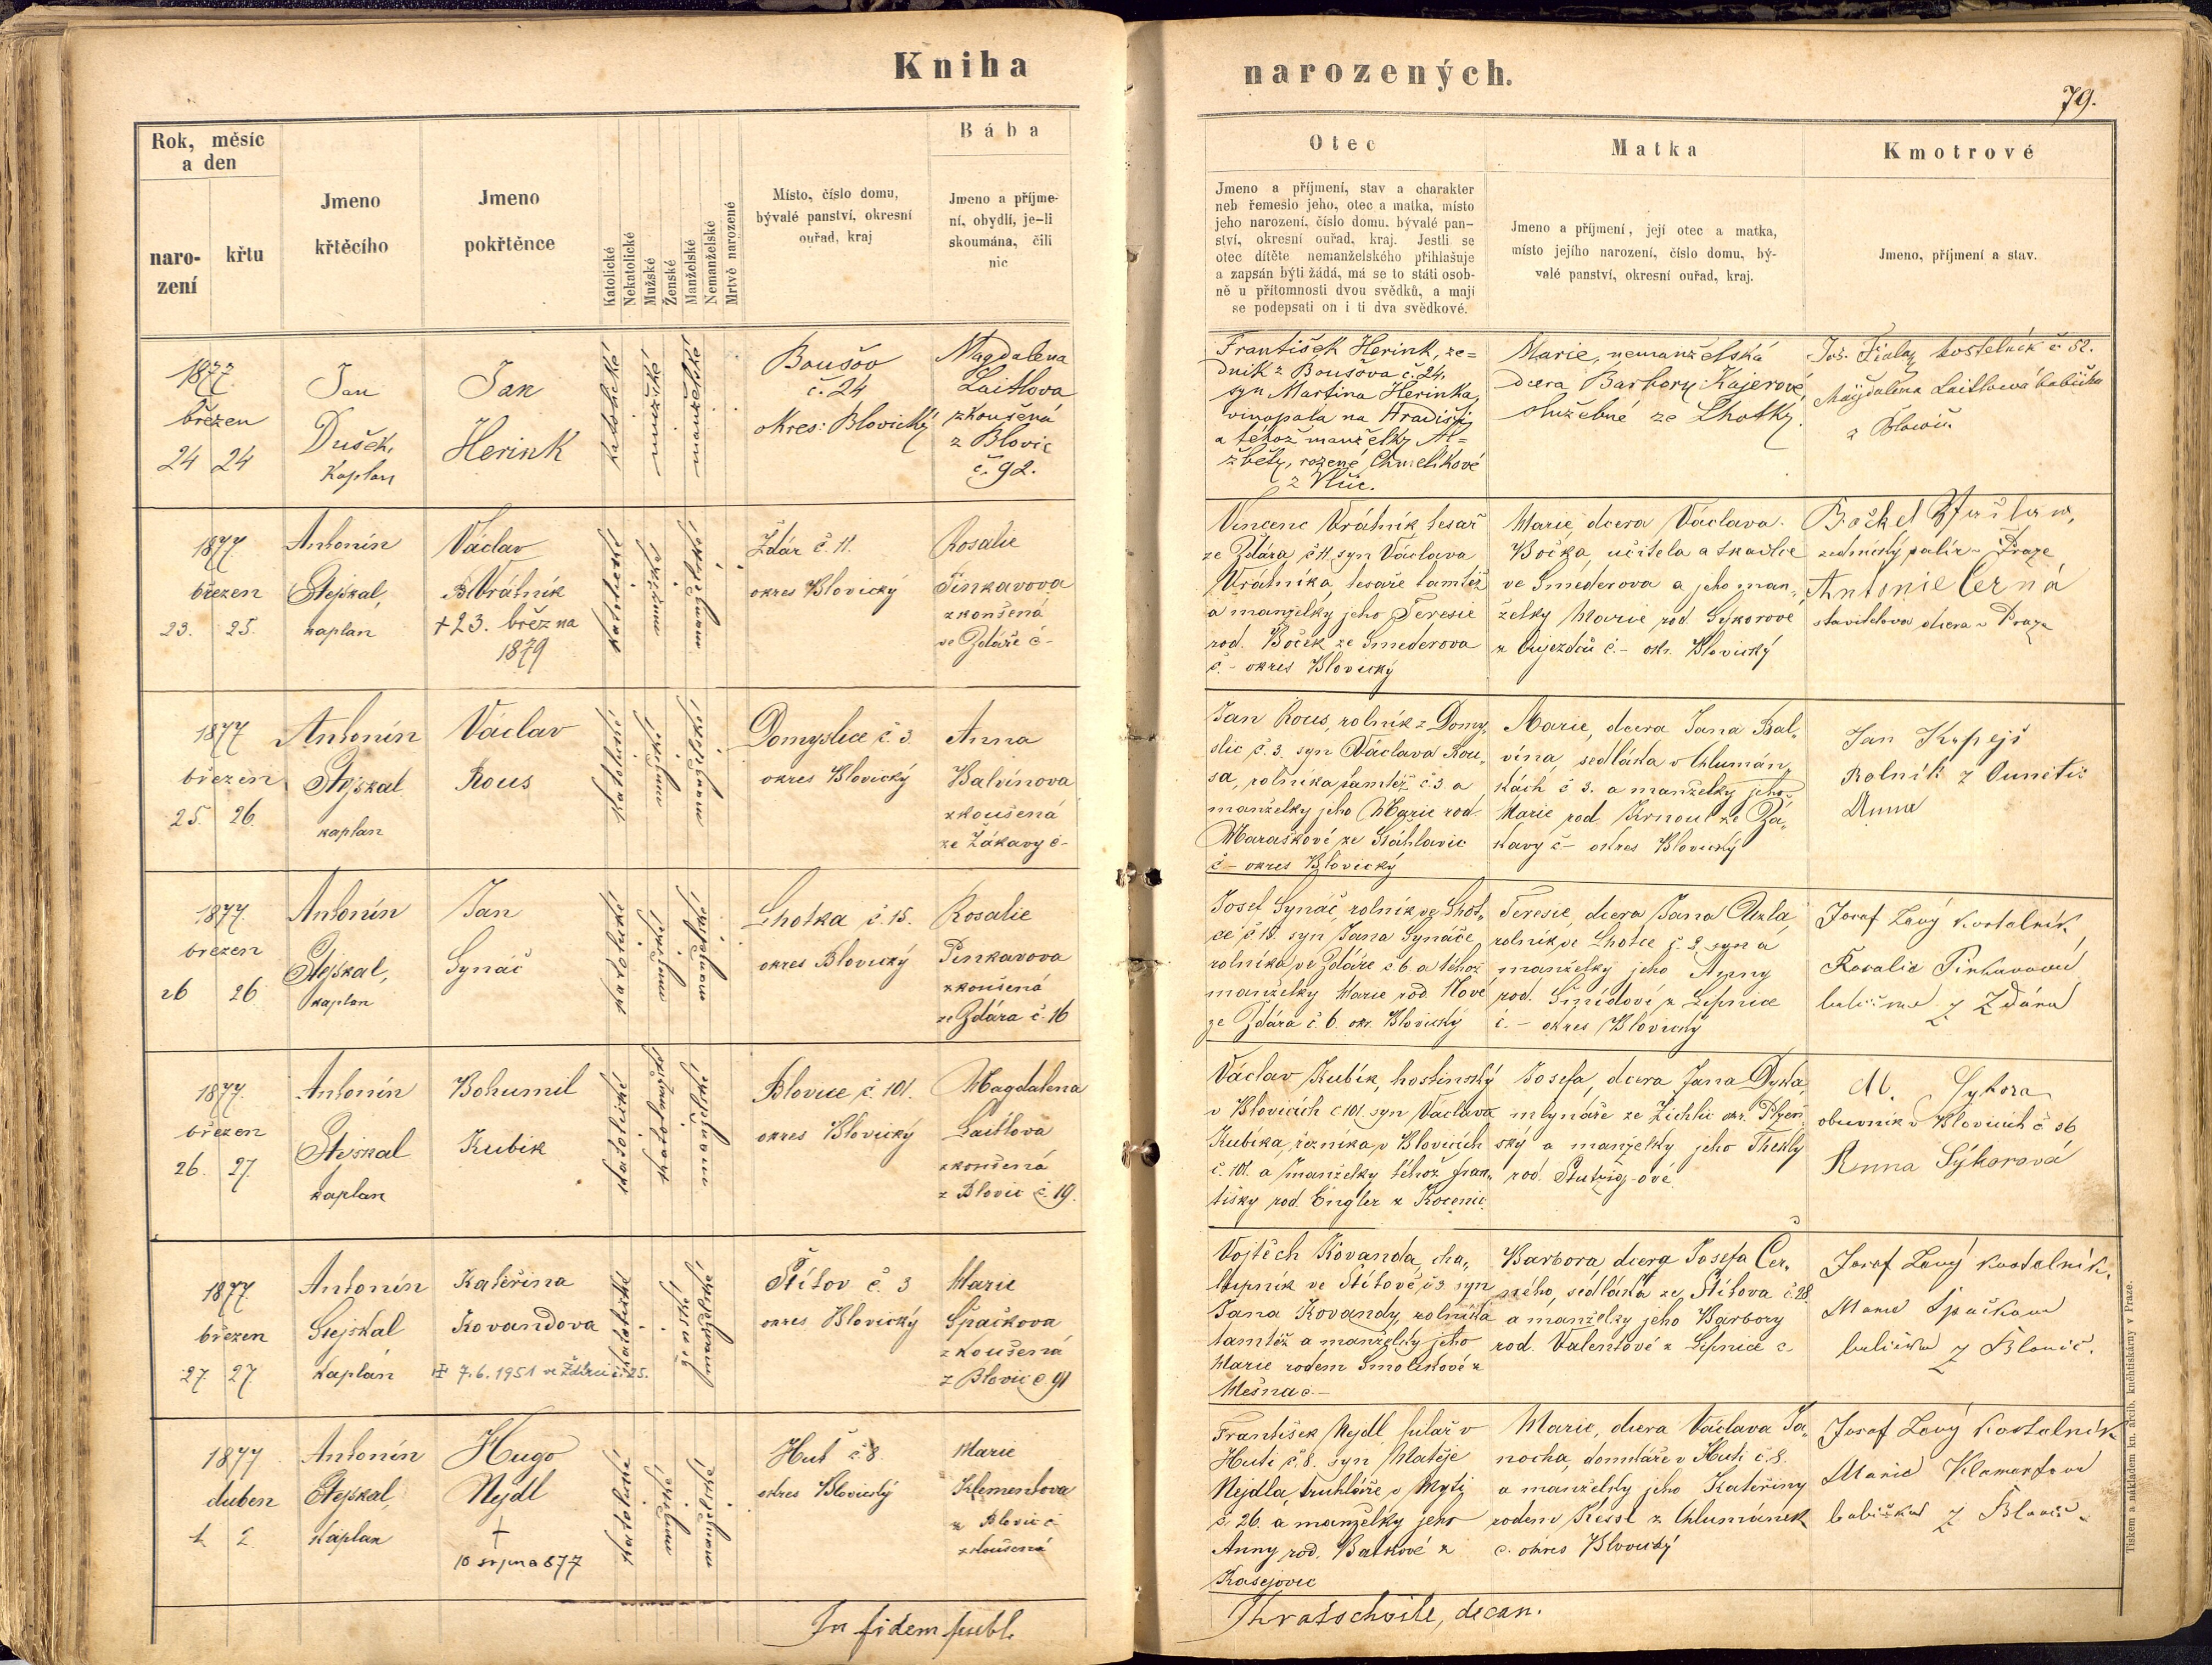 Kniha
narozených.
79.
Rok, měsíc
a den
naro-
zení
křtu
Jmeno
křtěcího
Jmeno
pokřtěnce
Katolické
Nekatolické
Mužské
Ženské
Manželské
Nemanželské
Mrtvě narozené
Místo, číslo domu,
bývalé panství, okresní
ouřad, kraj
Bába
Jmeno a příjme-
ní, obydlí, je-li
skoumána, čili
nic
Otec
Jmeno a příjmení, stav a charakter
neb řemeslo jeho, otec a matka, místo
jeho narození, číslo domu, bývalé pan-
ství, okresní ouřad, kraj. Jestli se
otec dítěte nemanželského přihlašuje
a zapsán býti žádá, má se to státi osob-
ně u přítomnosti dvou svědků, a mají
se podepsati on i ti dva svědkové.
Matka
Jmeno a příjmení, její otec a matka,
místo jejího narození, číslo domu, bý-
valé panství, okresní ouřad, kraj.
Kmotrové
Jmeno, příjmení a stav.
1877
březen
24 24
Jan
Dušek,
Kaplan
Jan
Herink
katolické
mužské
manželské
Boušov
č. 24
okres: Blovický
Magdalena
Laitlova
zkoušená
z Blovic
č. 92.
František Herink, ze=
dník z Boušova č. 24,
syn Martina Herinka,
vinopala na Hradišti
a téhož manželky Al=
žběty, rozené Chmelíkové
z Vlčic.
Marie, nemanželská
dcera Barbory Kajerové,
služebné ze Lhotky.
Jos. Fiala, kostelník č 52.
Magdalena Laitlowá babička
z Blowic
1877
březen
23. 25.
Antonín
Stejskal,
kaplan
Václav
Vrátník
+ 23. března
1879
katolické
mužské
manželské
Ždár č. 11.
okres Blovický
Rosalie
Pinkavova
zkoušená
ve Ždáře č -
Vincenc Vrátník, tesař
ze Ždára, č 11. syn Václava
Vrátníka, tesaře tamtéž
a manželky jeho Teresie
rod. Boček ze Smederova
č. - okres Blovický
Marie, dcera Václava
Bočka, učitele a tkadlce
ve Smederova a jeho man„
želky Marie rod. Sýkorové
z Oujezdců č. - okr. Blovický
zednický palír v Praze
Antonie Černá
stavitelova dcera v Praze
1877
březen
25. 26.
Antonín
Stejskal
kaplan
Václav
Rous
katolické
mužské
manželské
Domyslice č. 3
okres Blovický
Anna
Balvínova
zkoušená
ze Žákavy č -
Jan Rous, rolník z Domy„
slic č. 3. syn Václava Rou„
sa, rolníka tamtéž č. 3. a
manželky jeho Marie rod.
Maraškové ze Šťáhlavic
č - okres Blovický
Marie, dcera Jana Bal„
vína, sedláka v Chlumán„
kách č 3. a manželky jeho
Marie rod. Krnoul ze Žá„
kavy č - okres Blovický
Jan
Rolník z
Anna
1877.
březen
26 26
Antonín
Stejskal,
kaplan
Jan
Synáč
katolické
mužské
manželské
Lhotka č. 15.
okres Blovický
Rosalie
Pinkavova
zkoušená
ze Ždára č. 16
Josef Synáč, rolník ve Lhot„
ce č 15. syn Jana Synáče
rolníka ve Ždáře č 6. a téhož
manželky Marie rod. Nové
ze Ždára č. 6. okr. Blovický
Teresie, dcera Jana
rolník ve Lhotce č. 2 syn a
manželky jeho Anny
rod. Šmídové z Lipnice
č. - okres Blovický
Josef Lavý kostelník
Rosalie Pinkavová
babička z Ždára
1877.
březen
26. 27.
Antonín
Stejskal
kaplan
Bohumil
Kubík
katolické
mužské
manželské
Blovice č. 101.
okres Blovický
Magdalena
Laitlova
zkoušená
z Blovic č. 19.
Václav Kubík, hostinský
v Blovicích č 101. syn Václava
Kubíka, řezníka, v Blovicích
č. 101. a manželky téhož Fran„
tišky rod. Engler z Kocenic.
Josefa, dcera Jana Dyka,
mlynáře ze Žichlic okr. Plzeň„
ský a manželky jeho Thekly
rod. Stutzig-ové.
M. Sykora
obuvník v Blovicích č 56
Anna Sýkorová
1877.
březen
27 27
Antonín
Stejskal
kaplan
Kateřina
Kovandova
7.6.1951 ve Ždírci č. 25.
katolické
ženské
manželské
Štítov č. 3
okres Blovický
Marie
Špačkova
zkoušená
z Blovic č. 91
Vojtěch Kovanda, cha„
lupník ve Štítově, č 3. syn
Jana Kovandy, rolníka
tamtéž a manželky jeho
Marie rodem Smolíkové z
Měšna č -
Barbora, dcera Josefa Čer„
ného, sedláka ze Štítova č. 28
a manželky jeho Barbory
rod. Valentové z Lipnice č
Josef Lavý kostelník.
Marie Špačkova
babička z Blovic.
1877
duben
1. 2.
Antonín
Stejskal
kaplan
Hugo
Nejdl
+
10 srpna 877
katolické
mužské
manželské
Huť č. 8.
okres Blovický
Marie
Klementova
z Blovic č
zkoušená
František Nejdl, pilař v
Huti č. 8. syn Matěje
Nejdla, truhláře v Mýtě
č. 26. a manželky jeho
Anny rod. Barkové z
Kasejovic
Marie, dcera Václava Ja„
nocha, domkáře v Huti č. 8.
a manželky jeho Kateřiny
rodem Kessl z Chlumánek
č. okres Blovický
Josef Lavý kostelník
Marie Klementova
babička z Blovic
In fidem publ.
Jhratschoile, decan.
Tiskem a nákladem kn. arcib. kněhtiskárny v Praze.